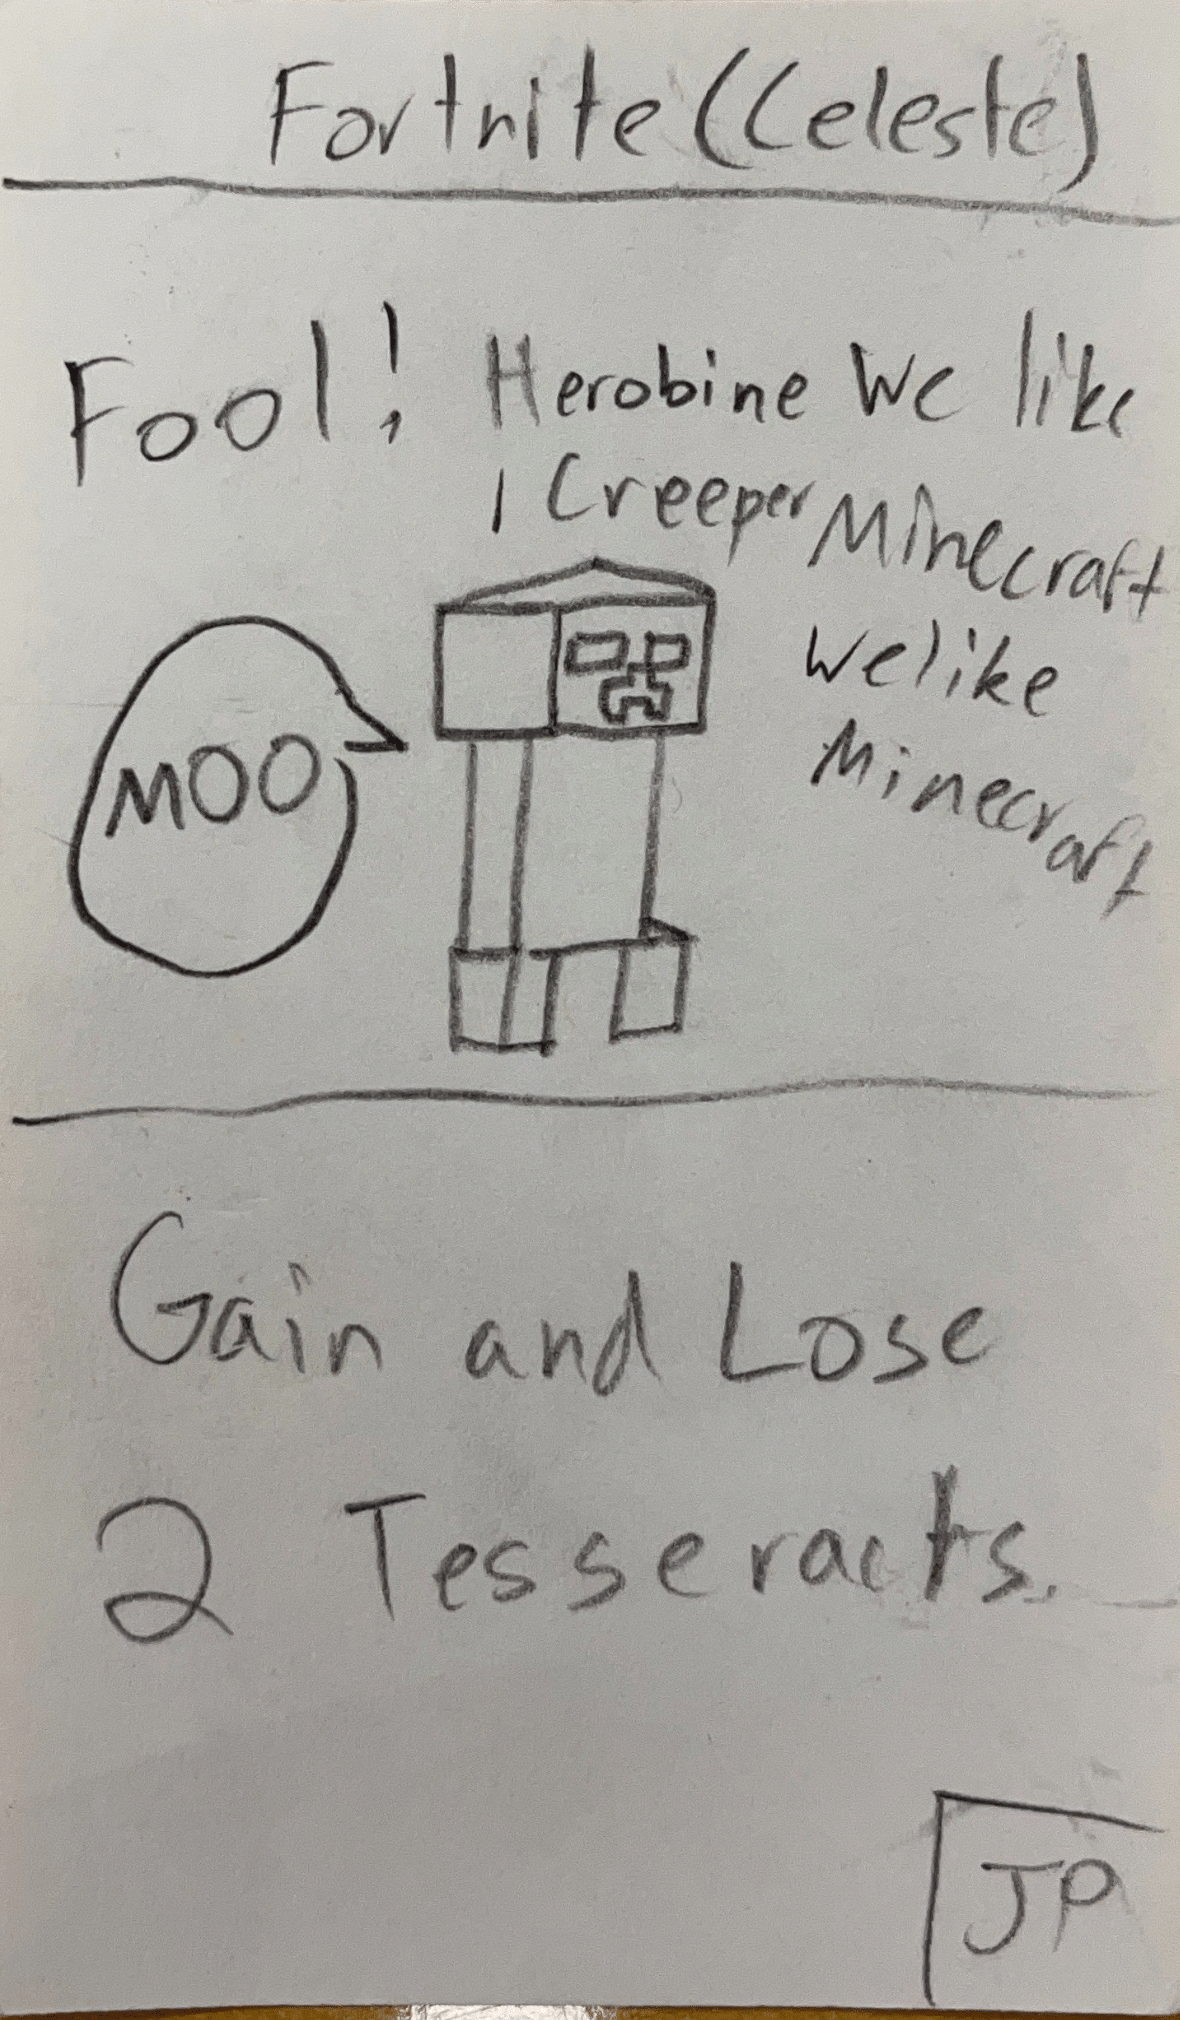 Fortnite (Celeste)
Fool! Herobine We like
1 Creeper Minecraft
We like
Minecraft
MOO
Gain and Lose
2 Tesseracts.
JP